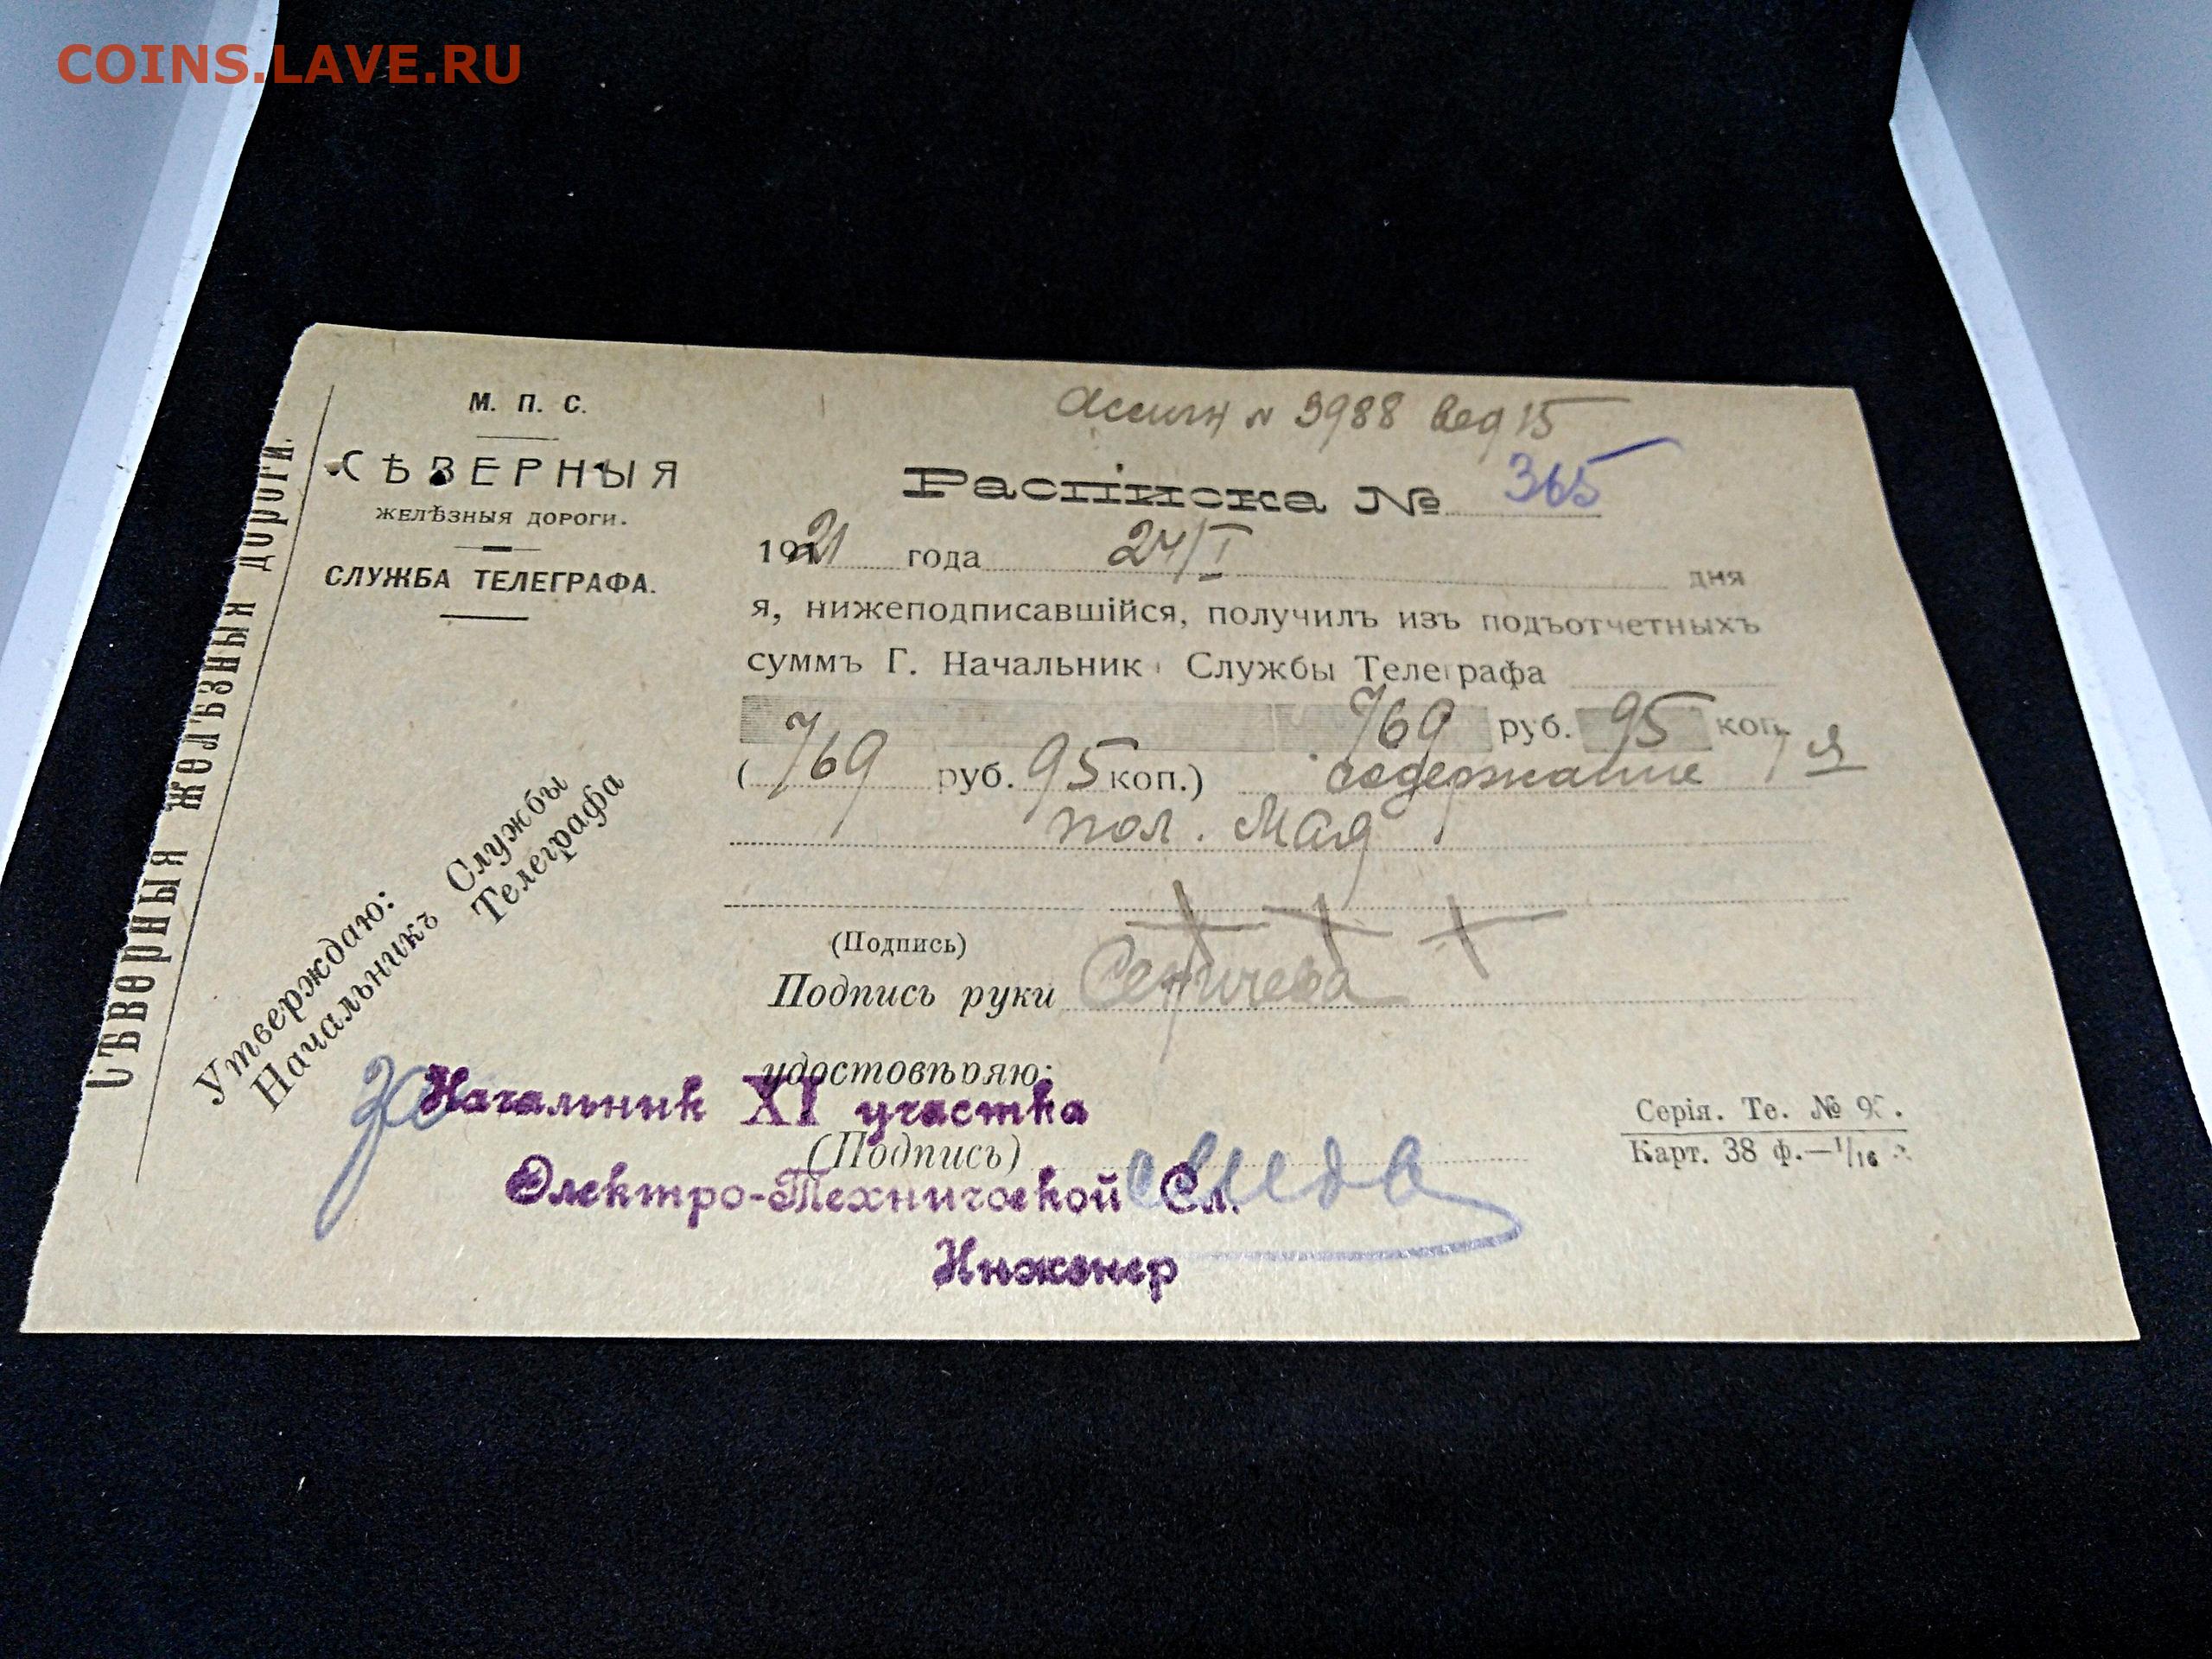 COINS.LAVE.RU
Сѣверныя желѣзныя дороги.
М. П. С.
СѢВЕРНЫЯ
ЖЕЛѢЗНЫЯ ДОРОГИ.
СЛУЖБА ТЕЛЕГРАФА.
Ассигн N 3988 вед 15
Расписка № 365
1921 года 24/I дня
я, нижеподписавшійся, получилъ изъ подъотчетныхъ
суммъ Г. Начальник Службы Телеграфа
769 769 руб. 95 коп.
( руб. 95 коп.) содержание 1 я
пол. Мая
+ + +
(Подпись)
Подпись руки
удостовѣряю:
(Подпись)
Утверждаю:
Начальникъ Службы
Телеграфа
За Начальник XI участка
Электро-Технической Сл.
Инженер
Серія. Те. №
Карт. 38 ф.—1/16